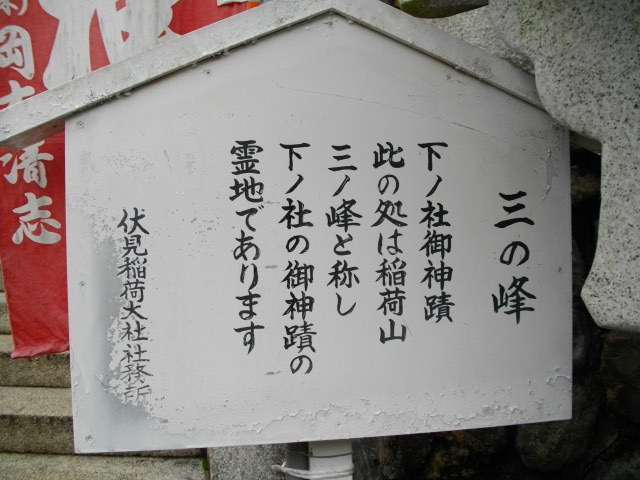 三の峰
下ノ社御神蹟
此の処は稲荷山
三ノ峰と称し
下ノ社の御神蹟の
霊地であります
伏見稲荷大社社務所
清志